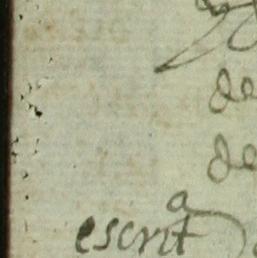 de
de
escritª